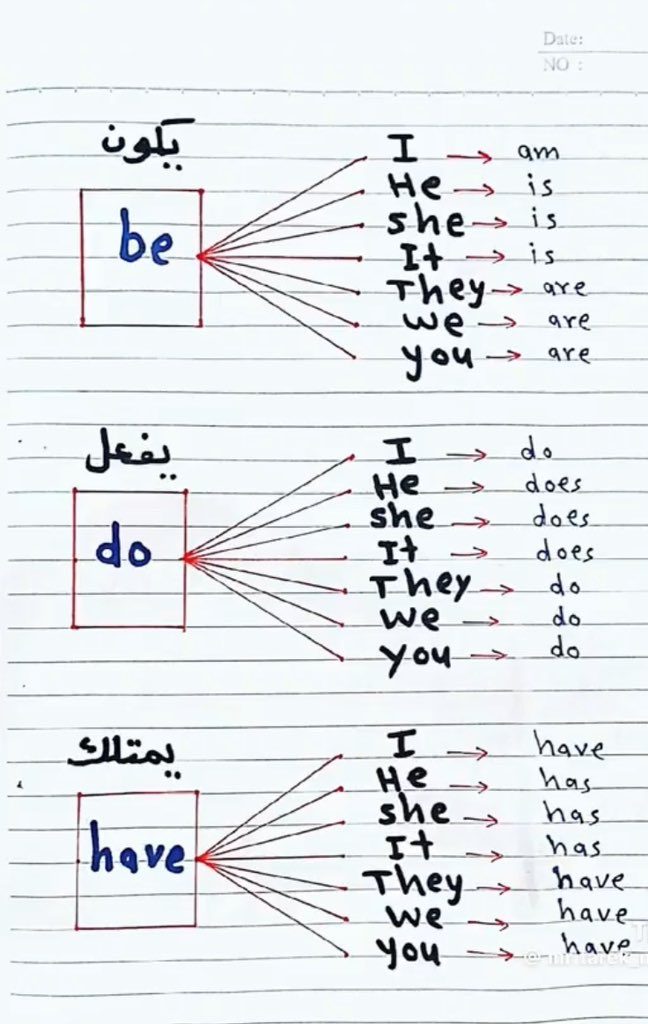 Date:
NO :
يكون
be
I → am
He → is
she → is
It → is
They → are
we → are
you → are
يفعل
do
I → do
He → does
she → does
It → does
They → do
we → do
you → do
يمتلك
have
I → have
He → has
she → has
It → has
They → have
we → have
you → have